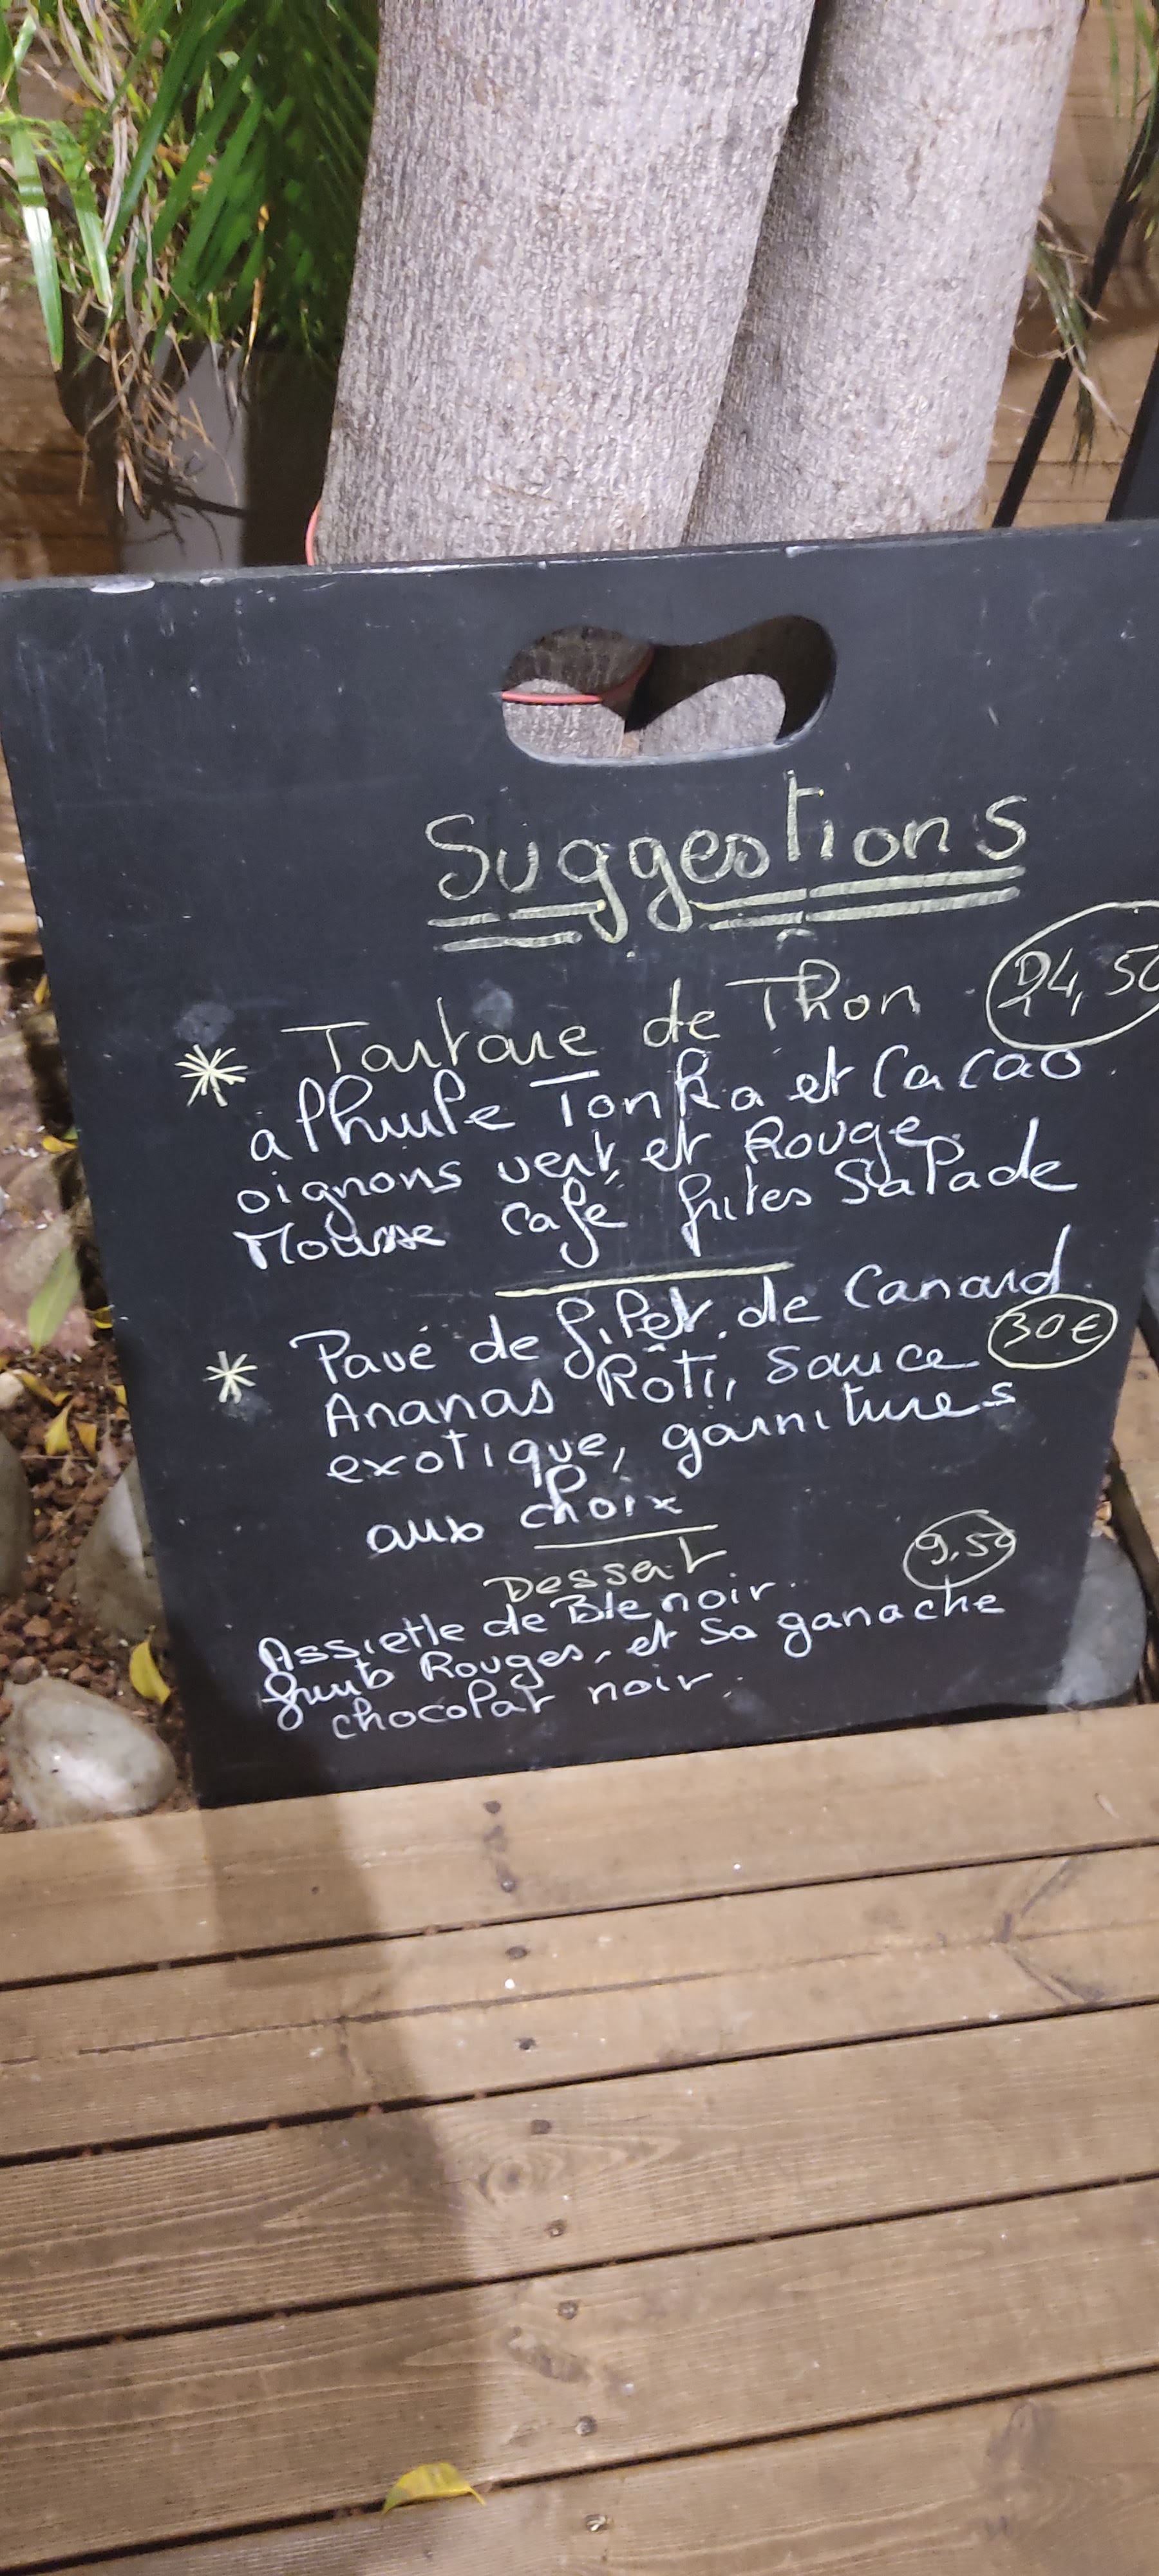 Suggestions
* Tartare de Thon 24,50
a l'huile Tonka et Cacao.
oignons vert et Rouge.
Mousse café frites Salade
* Pavé de filet de Canard
Ananas Rôti, sauce 30€
exotique, garnitures
aux choix
Dessert 9,50
Assiette de Blé noir.
fruits Rouges, et Sa ganache
chocolat noir.